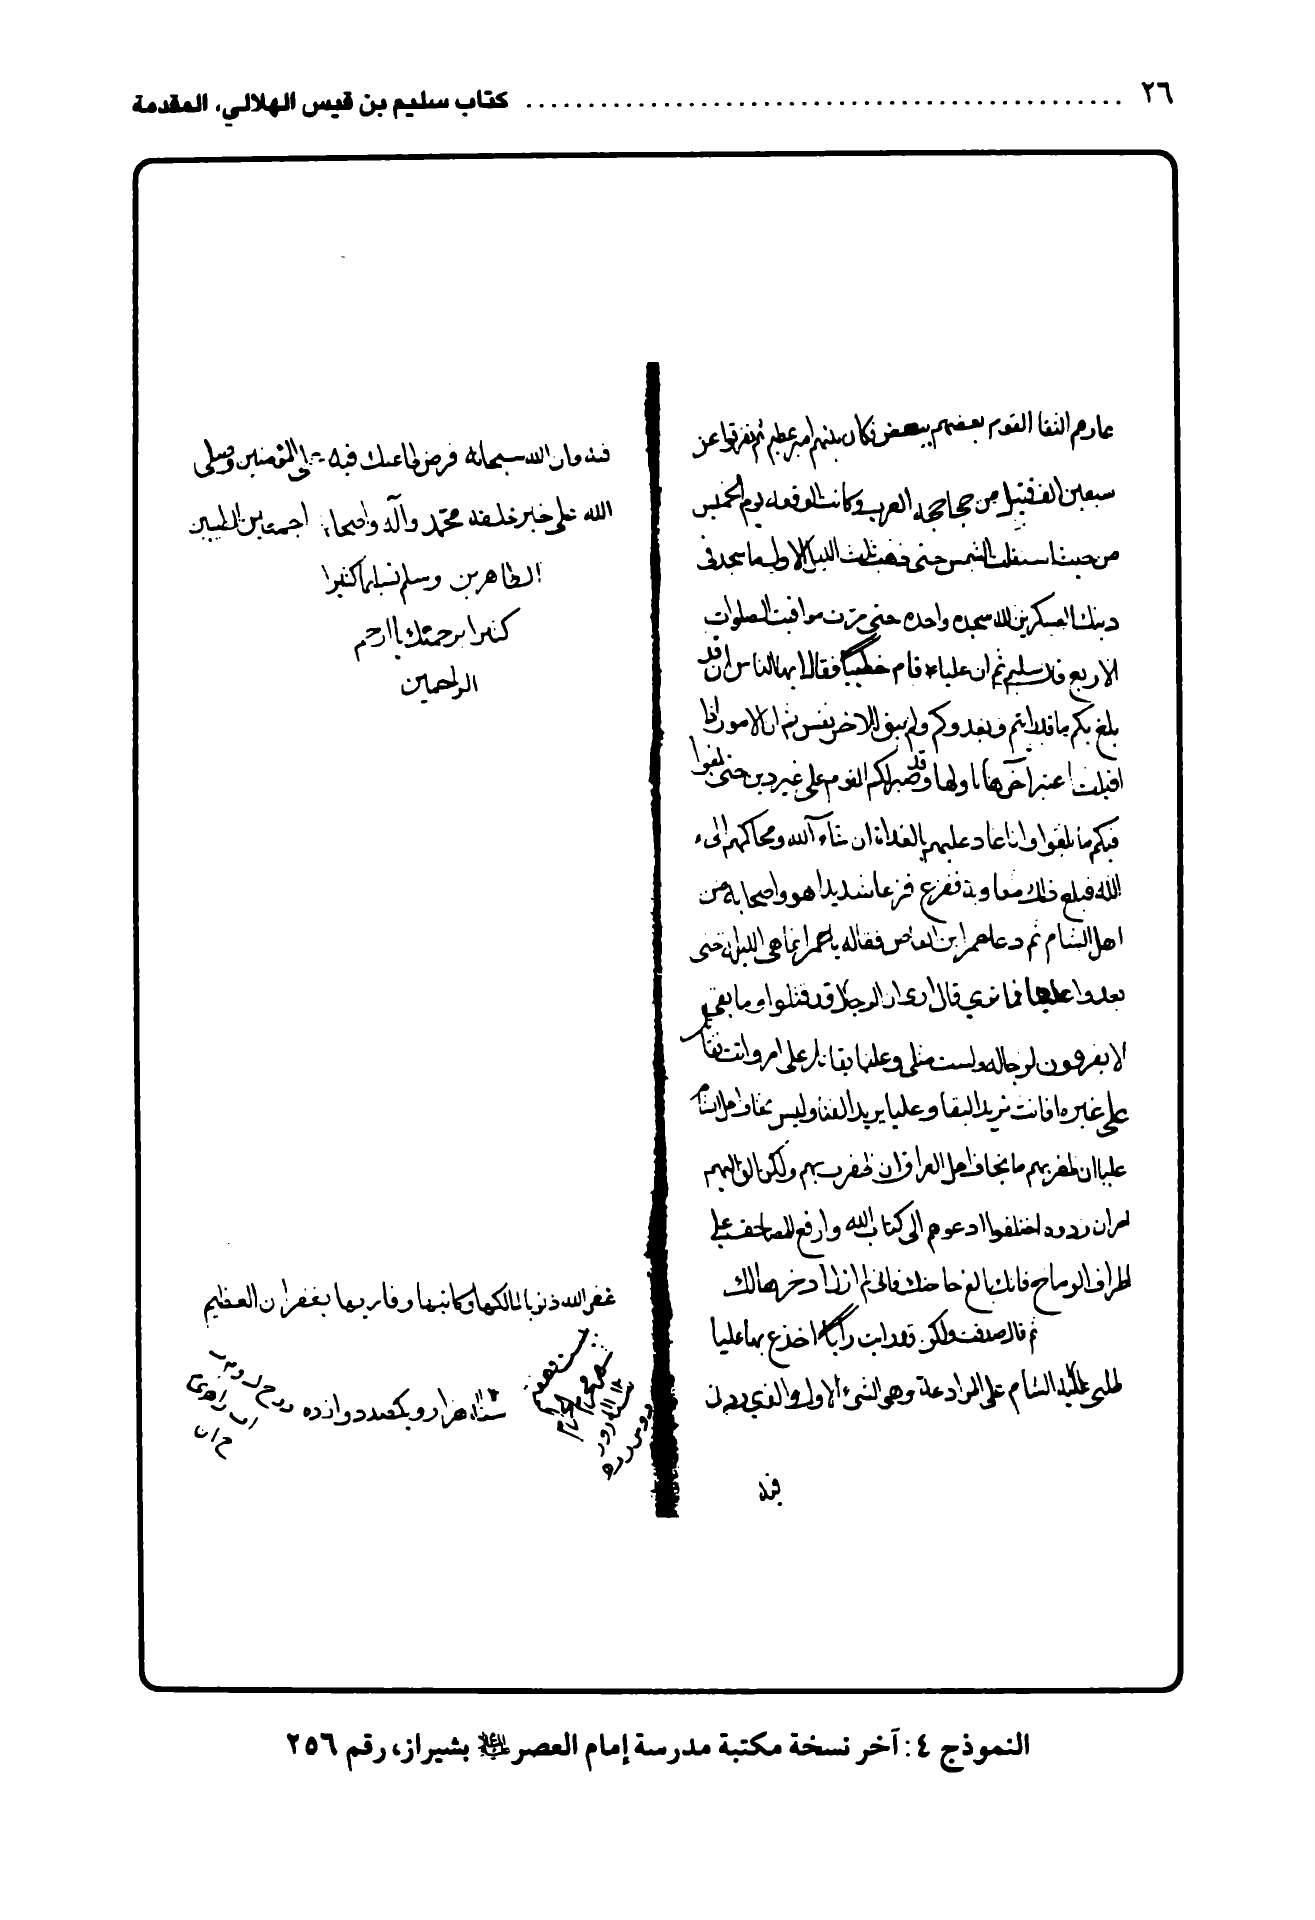 ٢٦ كتاب سليم بن قيس الهلالي، المقدمة
التقا القوم بعضهم ببعض فكان بينهم امر عظيم ثم تفرقوا عن
سبعين الف قتيل من جحاجحه العرب وكانت الوقعه يوم الخميس
من حيث استقلت الشمس حتى ذهب ثلث الليل الاول ما سجد في
العسكرين لله سجده واحده حتى مرت مواقيت الصلوات
الاربع قال سليم ثم ان عليا قام خطيبا فقال ايها الناس ان قد
بلغ بكم ما قد رايتم وبعدوكم ولم يبق الا اخر نفس ثم ان الامور اذا
اقبلت اعتبر آخرها باولها وقد صبر لكم القوم على غير دين حتى بلغوا
فيكم ما بلغوا وانا غاد عليهم بالغداة ان شآء الله ومحاكمهم الى
الله فبلغ ذلك معاوية ففزع فزعا شديدا هو واصحابه من
اهل الشام ثم دعا عمرا بن العاص فقال له يا عمرا نما هي الليل حتى
فما ترى قال ارى ان الرجال قد قتلوا وما بقى
لرجاله ولست مثله وعليا يقاتل على امر وانت تقاتل
على غيره افانت تريد البقا وعليا يريد الفنا وليس يخاف اهل الشام
عليا ان ظفر بهم ما يخاف اهل العراق ان ظفرت بهم ولكن الق اليهم
اختلفوا ادعوهم الى كتاب الله وارفع المصاحف على
اطراف الرماح فانك بالغ حاجتك فانى لم ازل ادخرها لك
ثم قال صدقت ولكن قد رايت رايا اخدع بها عليا
طلبى اليه الشام على الموادعة وهو الشىء الاول والذي ردنى
وان الله سبحانه فرض طاعتك فيه على المؤمنين وصلى
الله على خير خلقه محمد وآله واصحابه اجمعين الطيبين
الطاهرين وسلم تسليما كثيرا
كثيرا برحمتك يا ارحم
الراحمين
غفر الله ذنوبا لمالكها وكاتبها وقاريها بغفران العظيم
سنه هزار ويكصد دوازده
النموذج ٤: آخر نسخة مكتبة مدرسة إمام العصر عليه السلام بشيراز، رقم ٢٥٦